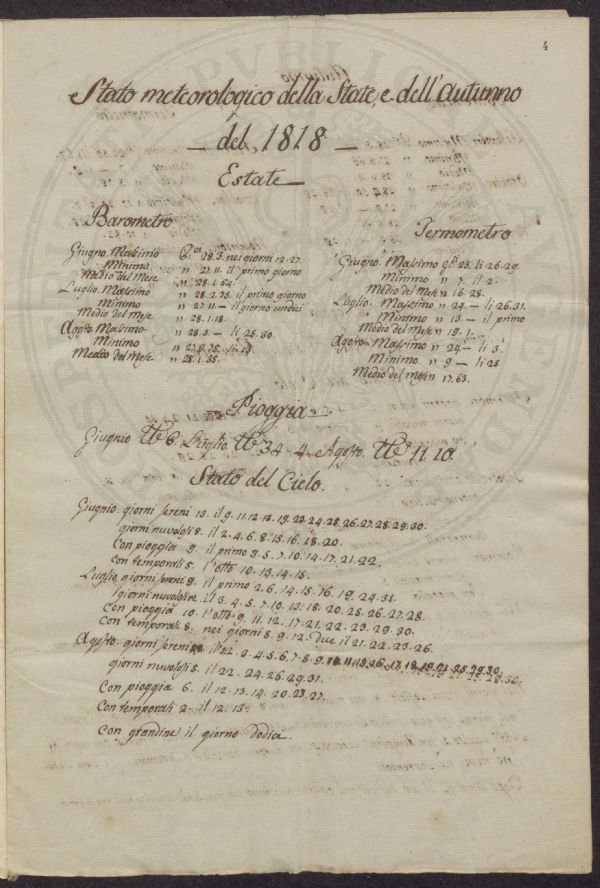 4
Stato meteorologico della State, e dell'autunno
— del 1818 —
Estate —
Barometro
Giugno. Massimo 28.3. nei giorni 12. 27.
Minimo " 27.11. il primo giorno
Medio del Mese " 28.1.64.
Luglio. Massimo " 28.2.75. il primo giorno
Minimo " 27.11 — il giorno undici
Medio del Mese " 28.1.18.
Agosto Massimo " 28.3 — li 25.30.
Minimo " 27.9.75. li 13.
Medio del Mese " 28.1.35.
Termometro
Giugno. Massimo 23. li 26.29.
Minimo " 7. il 2.
Medio del Mese " 16.28.
Luglio. Massimo " 24. — li 26.31.
Minimo " 13 — il primo
Medio del Mese " 19.1.
Agosto. Massimo " 24 — li 3.
Minimo " 9 — li 28
Medio del Mese " 17.63.
Pioggia
Giugnio 6. Luglio. 34 - 4. Agosto. 11.10.
Stato del Cielo.
Giugnio giorni sereni 13. il 9.11.12.18.19.22.24.25.26.27.28.29.30.
giorni nuvolosi 8. il 2.4.6.8.15.16.18.20.
Con pioggia 9. il primo 3.5.7.10.14.17.21.22.
con temporali 5. l'otto 10.13.14.15.
Luglio giorni sereni 9. il primo 2.6.14.15.16.19.24.31.
giorni nuvolosi il 3.4.5.7.10.13.18.20.25.26.27.28.
Con pioggia 10. l'otto 9.11.12.17.21.22.23.29.30.
con temporali 8. nei giorni 8.9.12. due il 21.22.23.26.
Agosto giorni sereni
giorni nuvolosi 5. il 22.24.26.29.31.
Con pioggia 6. il 12.13.14.20.23.27.
Con temporali 2. il 12.13.
Con grandine il giorno dodici.